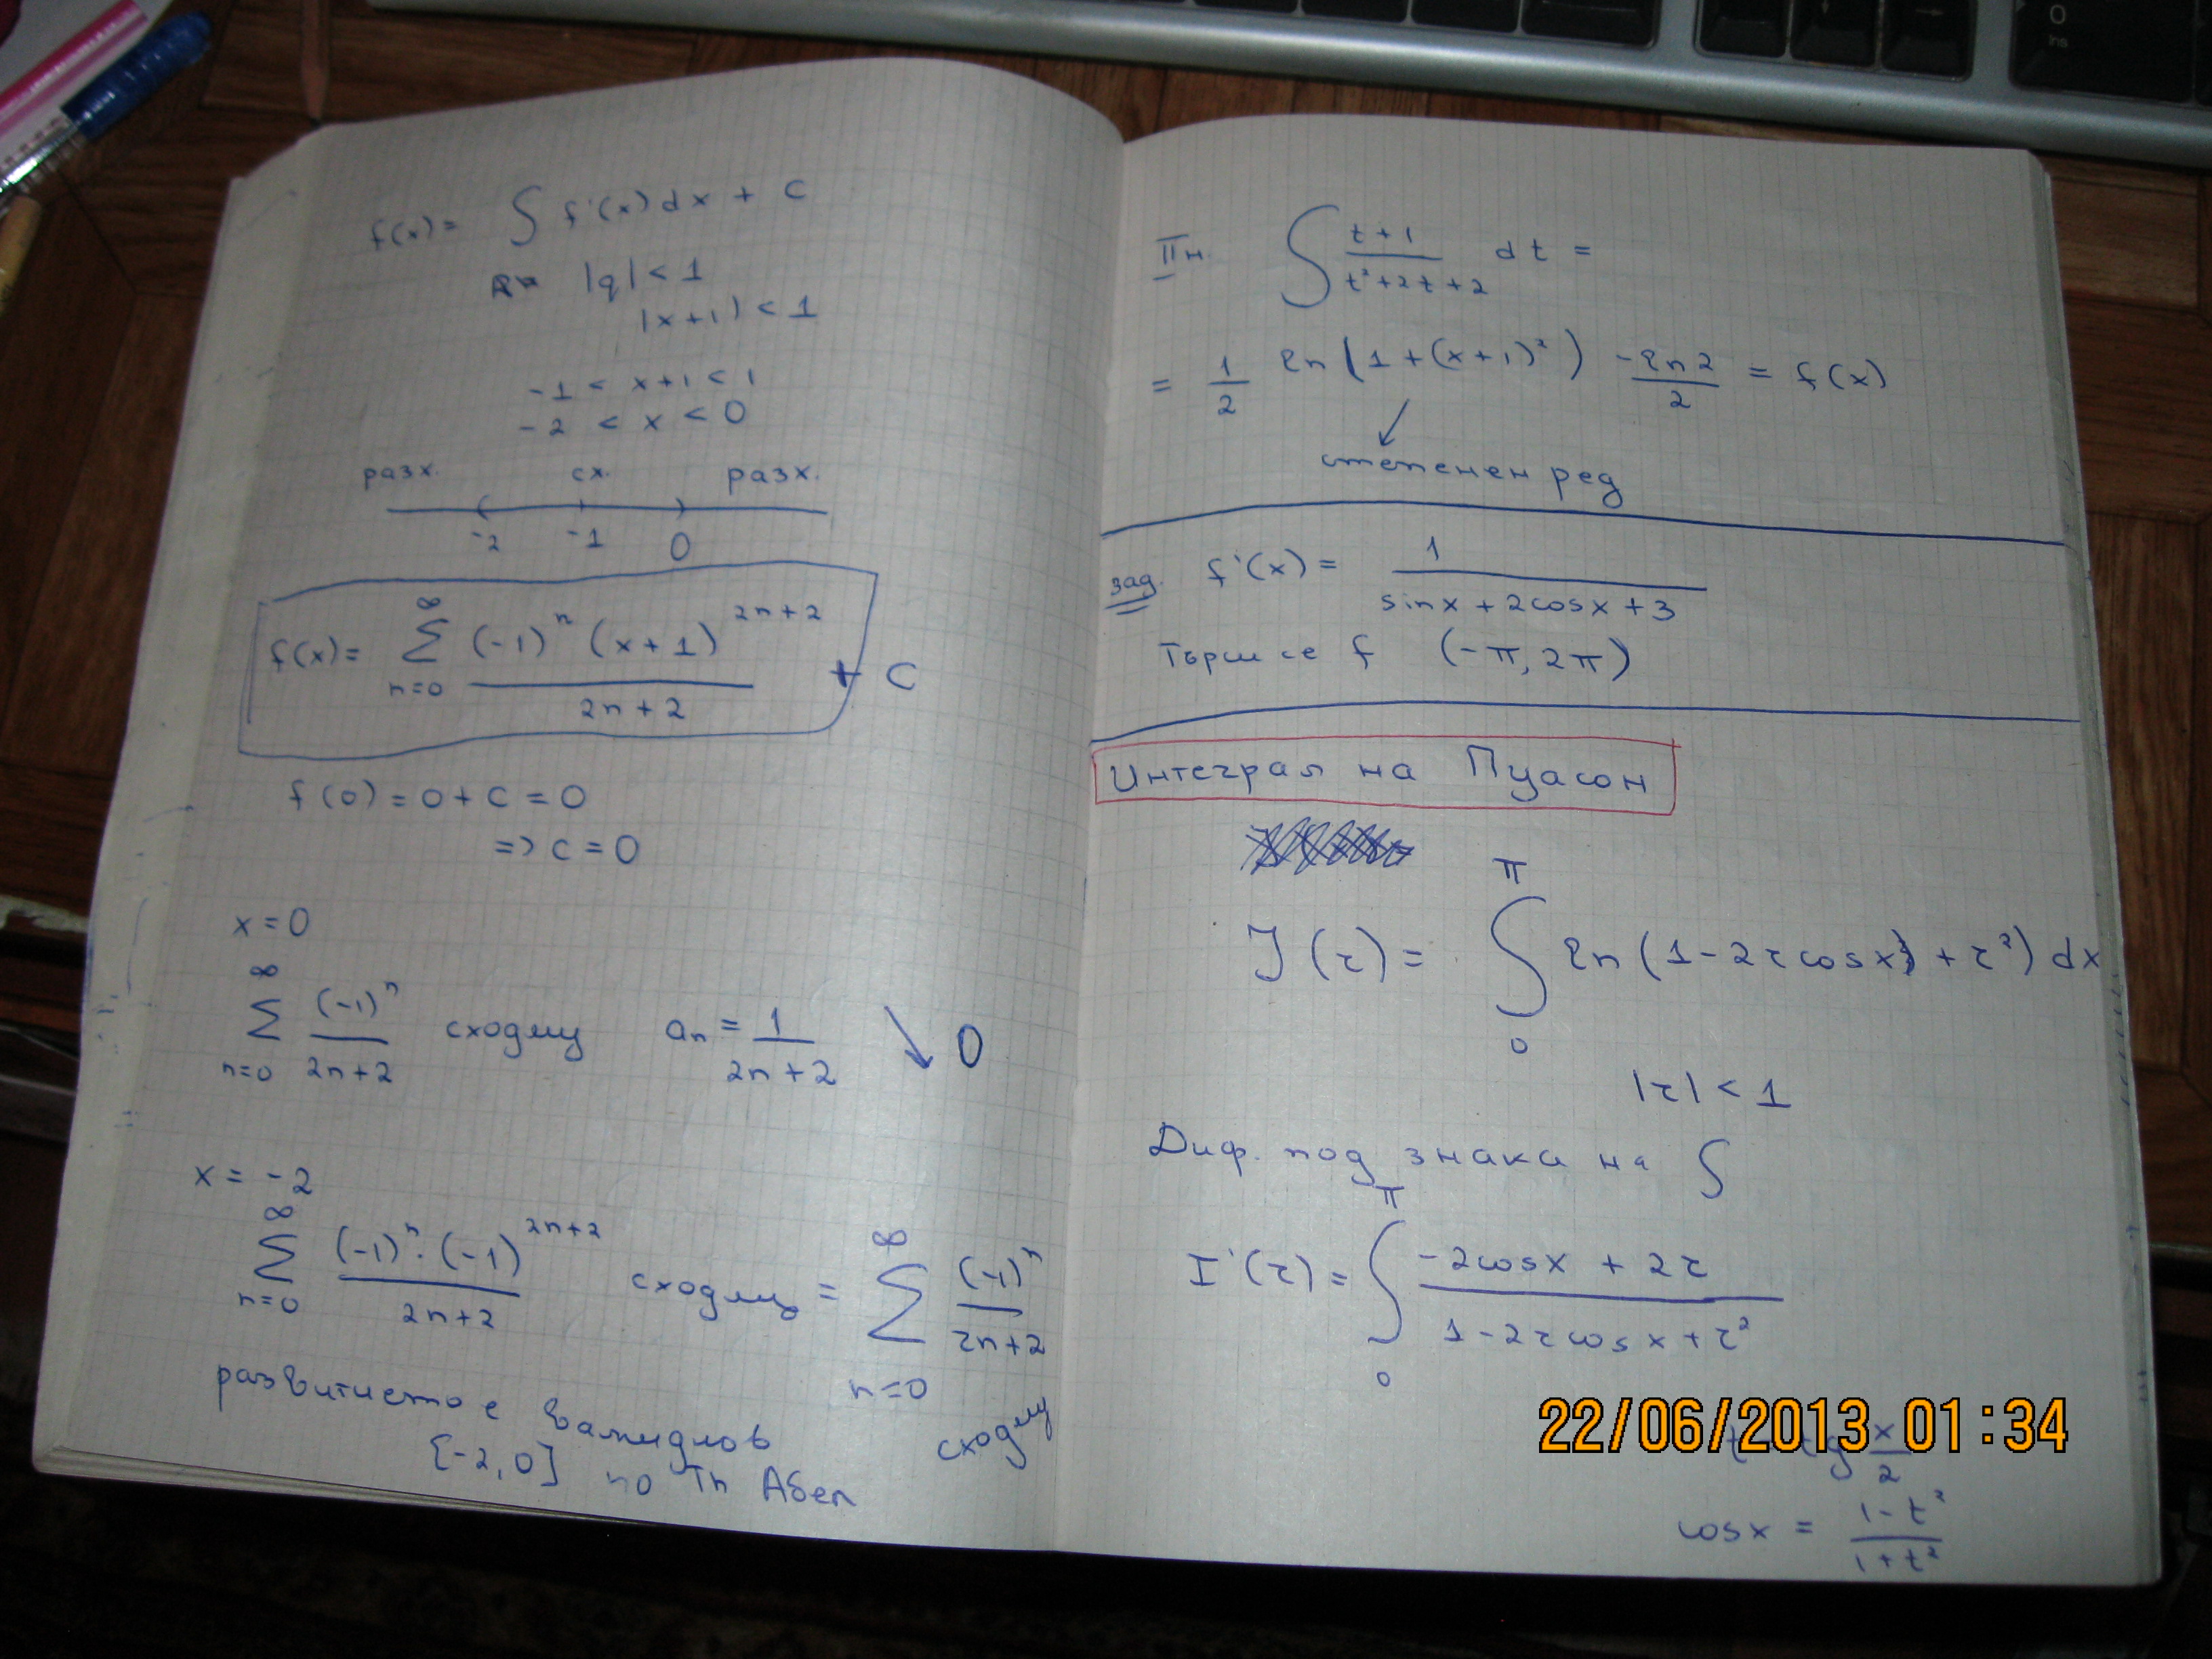 f(x) = ∫ f'(x) dx + c
|q| < 1
|x+1| < 1
-1 < x+1 < 1
-2 < x < 0
разх. сх. разх.
-2 -1 0
f(x) = ∑_{n=0}^{∞} (-1)^n (x+1)^{2n+2} / 2n+2 + C
f(0) = 0 + c = 0
=> c = 0
x = 0
∑_{n=0}^{∞} (-1)^n / 2n+2 сходящ a_n = 1 / 2n+2 ↘ 0
x = -2
∑_{n=0}^{∞} (-1)^n . (-1)^{2n+2} / 2n+2 сходящ = ∑_{n=0}^{∞} (-1)^n / 2n+2
сходящ
развитието е
[-2, 0] по Th Абел
II н. ∫ t+1 / t²+2t+2 dt =
= 1/2 ln(1 + (x+1)²) - ln2 / 2 = f(x)
↙
степенен ред
зад. f'(x) = 1 / sinx + 2cosx + 3
Търси се f (-π, 2π)
Интеграл на Пуасон
J(r) = ∫_0^π ln(1 - 2r cosx + r²) dx
|r| < 1
Диф. под знака на ∫
I'(r) = ∫_0^π -2cosx + 2r / 1 - 2r cosx + r²
22/06/2013 01:34
x/2
cosx = 1-t² / 1+t²
0
Ins